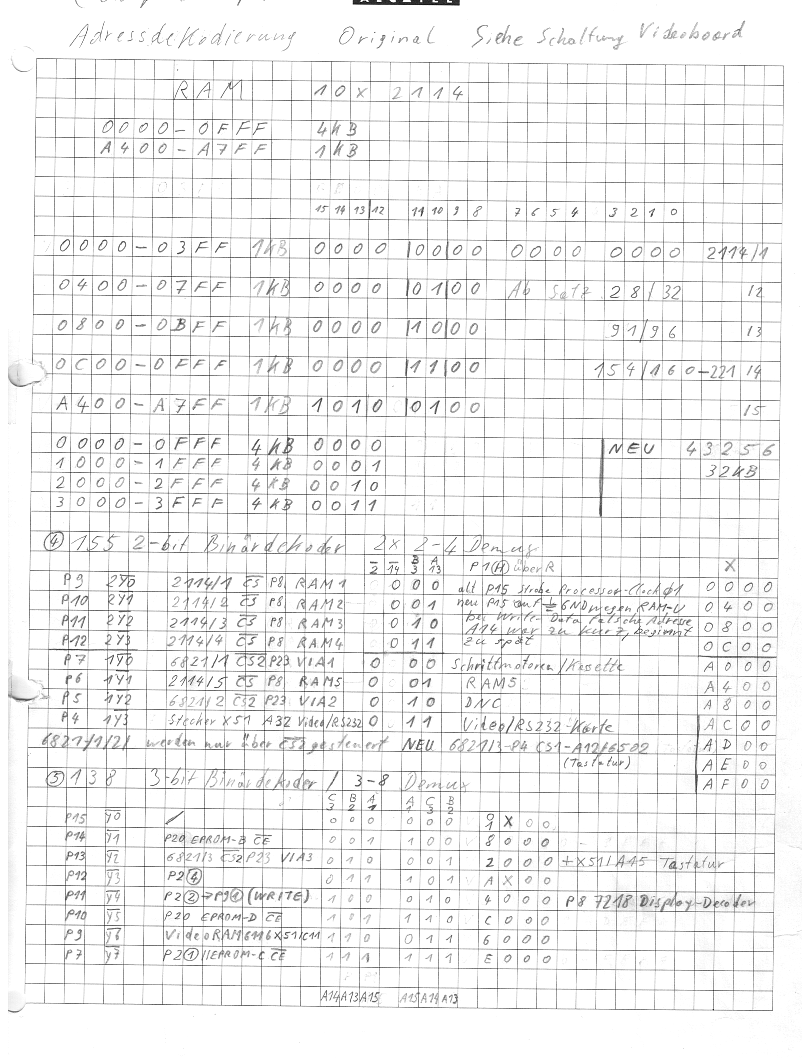 Adressdekodierung Original Siehe Schaltung Videoboard
RAM 10x 2114
0000-0FFF 4KB
A400-A7FF 1KB
15 14 13 12 11 10 9 8 7 6 5 4 3 2 1 0
0000-03FF 1KB 0000 |00|00 0000 0000 2114/1
0400-07FF 1KB 0000 |01|00 Ab Satz 28/32 /2
0800-0BFF 1KB 0000 |10|00 91/96 /3
0C00-0FFF 1KB 0000 |11|00 154/160-221 /4
A400-A7FF 1KB 1010 |01|00 /5
0000-0FFF 4KB 0000 NEU 43256
1000-1FFF 4KB 0001 32KB
2000-2FFF 4KB 0010
3000-3FFF 4KB 0011
④ 155 2-bit Binärdekoder 2x 2-4 Demux
2 14 B3 A13 P1(A) über R X
P9 2Y0 2114/1 CS P8 RAM1 0 0 0 alt P15 Strobe Processor-Clock Φ1 0000
P10 2Y1 2114/2 CS P8 RAM2 0 0 1 neu P15 auf GND wegen RAM-U 0400
P11 2Y2 2114/3 CS P8 RAM3 0 1 0 bei Write-Data falsche Adresse 0800
P12 2Y3 2114/4 CS P8 RAM4 0 1 1 A14 war zu kurz, beginnt zu spät 0C00
P7 1Y0 6821/1 CS2 P23 VIA1 0 0 0 Schrittmotoren/Kasette A000
P6 1Y1 2114/5 CS P8 RAM5 0 0 1 RAM5 A400
P5 1Y2 6821/2 CS2 P23 VIA2 0 1 0 DNC A800
P4 1Y3 Stecker X51 A32 Video/RS232 0 1 1 Video/RS232-Karte AC00
6821/1/2/ werden nur über CS2 gesteuert NEU 6821/3-P4 CS1-A12/6502 AD00
(Tastatur) AE00
⑤ 138 3-bit Binärdekoder / 3-8 Demux AF00
C3 B2 A1 A1 C3 B2
P15 Y0 / 0 0 0 0 0 0 0/1 X00
P14 Y1 P20 EPROM-B CE 0 0 1 1 0 0 8000
P13 Y2 6821/3 CS2 P23 VIA3 0 1 0 0 0 1 2000 +X51/A15 Tastatur
P12 Y3 P2④ 0 1 1 1 0 1 AX00
P11 Y4 P2②→P9① (WRITE) 1 0 0 0 1 0 4000 P8 7218 Display-Decoder
P10 Y5 P20 EPROM-D CE 1 0 1 1 1 0 C000
P9 Y6 VideoRAM6116 X51/C11 1 1 0 0 1 1 6000
P7 Y7 P2①//EPROM-C CE 1 1 1 1 1 1 E000
A14A13A15 A15A14A13